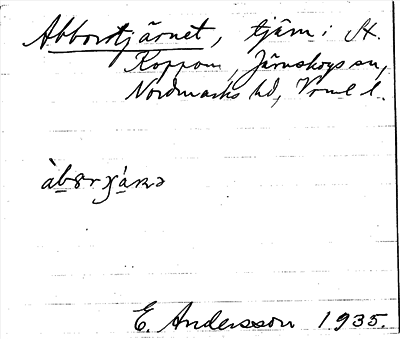 Abborrtjärnet, tjärn i St.
Koppom, Järnskogs sn,
Nordmarks hd, Vrml l.
E. Andersson 1935.